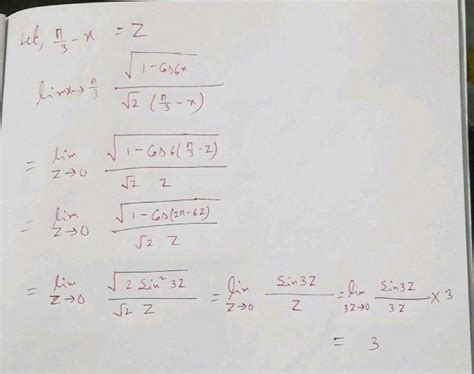 Let, π/3 - x = Z
lim x→π/3 √(1 - Cos6x) / √2 (π/3 - x)
= lim Z→0 √(1 - Cos6(π/3 - Z)) / √2 Z
= lim Z→0 √(1 - Cos(2π - 6Z)) / √2 Z
= lim Z→0 √(2 Sin² 3Z) / √2 Z = lim Z→0 Sin3Z / Z = lim 3Z→0 Sin3Z / 3Z × 3
= 3